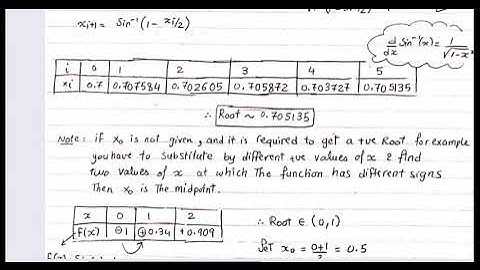 x_{i+1} = Sin⁻¹(1 - x_i/2)
d/dx Sin⁻¹(x) = 1/√1-x²
i 0 1 2 3 4 5
x_i 0.7 0.707584 0.702605 0.705872 0.703727 0.705135
∴ Root ~ 0.705135
Note: if x₀ is not given, and it is required to get a +ve Root for example
you have to substitute by different +ve values of x & find
two values of x at which The function has different signs
Then x₀ is The midpoint.
x 0 1 2
f(x) ⊖1 ⊕0.34 +0.909
∴ Root ∈ (0,1)
Set x₀ = 0+1/2 = 0.5